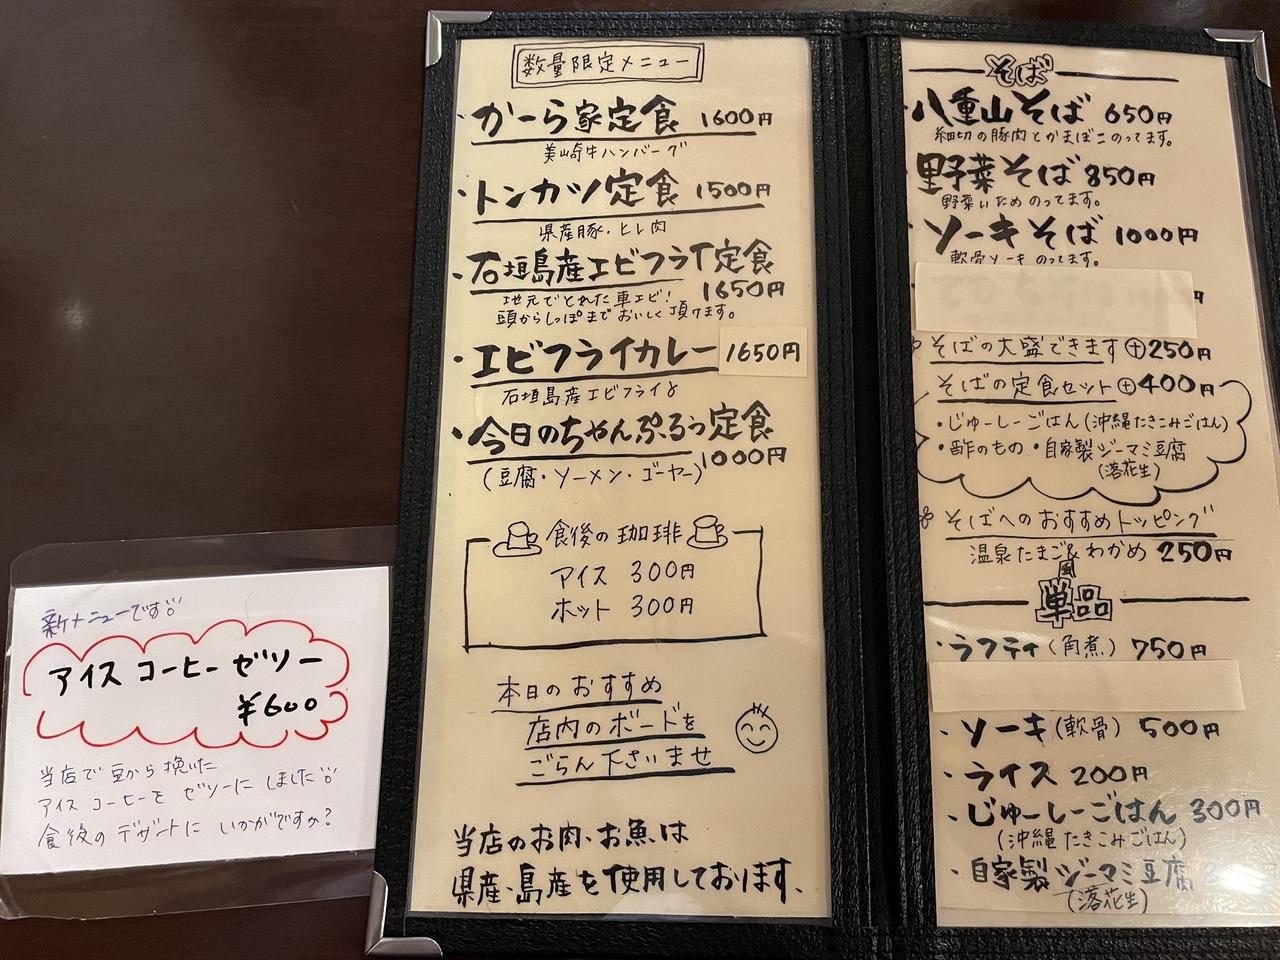 数量限定メニュー
・かーら家定食 1600円
美崎牛ハンバーグ
・トンカツ定食 1500円
県産豚・ヒレ肉
・石垣島産エビフライ定食
1650円
地元でとれた車エビ!
頭からしっぽまでおいしく頂けます。
・エビフライカレー 1650円
石垣島産エビフライ
・今日のちゃんぷるぅ定食
1000円
(豆腐・ソーメン・ゴーヤー)
食後の珈琲
アイス 300円
ホット 300円
本日のおすすめ
店内のボードを
ごらん下さいませ
当店のお肉、お魚は
県産、島産を使用しております、
そば
・八重山そば 650円
細切の豚肉とかまぼこのってます。
野菜そば 850円
野菜いためのってます。
・ソーキそば 1000円
軟骨ソーキのってます。
円
そばの大盛できます ⊕250円
そばの定食セット ⊕400円
・じゅーしーごはん(沖縄たきこみごはん)
・酢のもの ・自家製ジーマミ豆腐
(落花生)
そばへのおすすめトッピング
温泉たまご風&わかめ 250円
単品
・ラフティ(角煮) 750円
・ソーキ(軟骨) 500円
・ライス 200円
・じゅーしーごはん 300円
(沖縄たきこみごはん)
・自家製ジーマミ豆腐
(落花生)
新メニューです
アイスコーヒーゼリー
¥600
当店で豆から挽いた
アイスコーヒーを ゼリーにしました
食後のデザートに いかがですか?